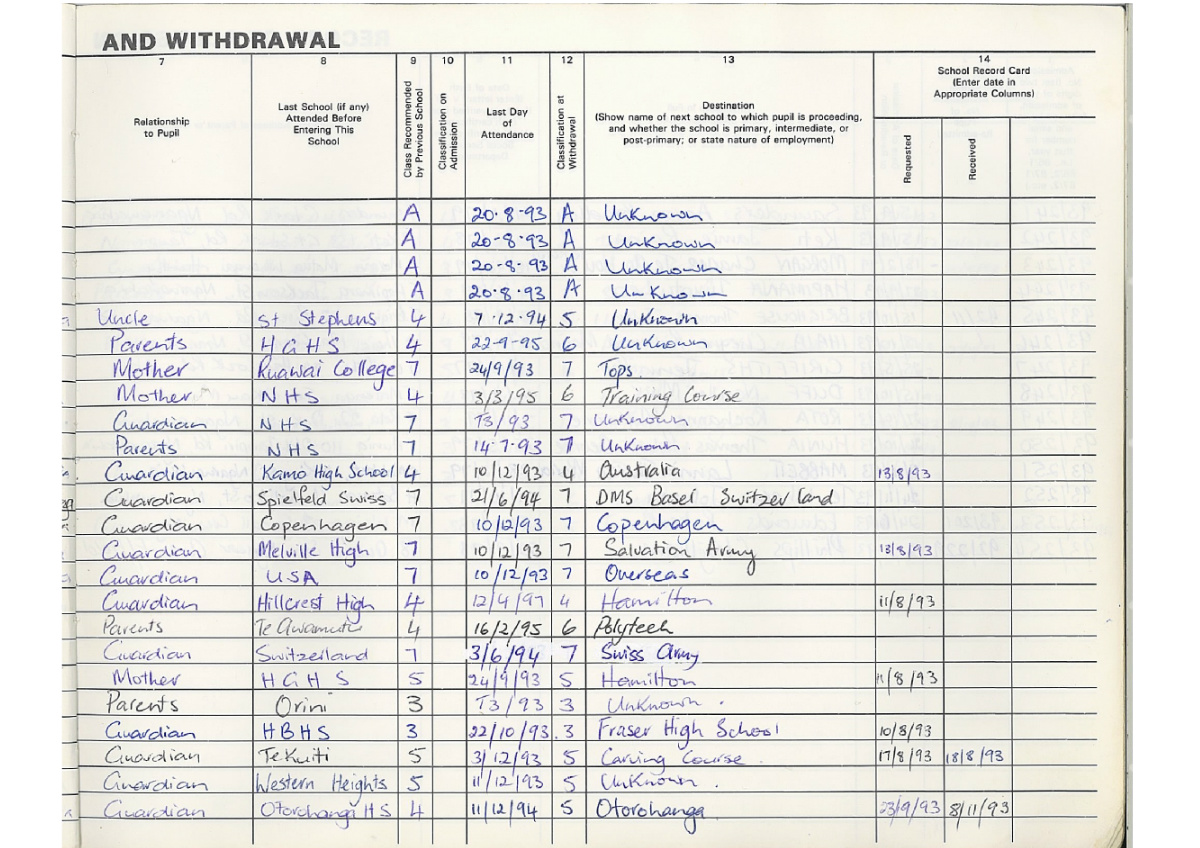 AND WITHDRAWAL
7 8 9 10 11 12 13 14
Relationship to Pupil
Last School (if any) Attended Before Entering This School
Class Recommended by Previous School
Classification on Admission
Last Day of Attendance
Classification at Withdrawal
Destination (Show name of next school to which pupil is proceeding, and whether the school is primary, intermediate, or post-primary; or state nature of employment)
School Record Card (Enter date in Appropriate Columns)
Requested
Received
A 20·8·93 A Unknown
A 20-8·93 A Unknown
A 20-8·93 A Unknown
A 20·8·93 A Unknown
Uncle St Stephens 4 7·12·94 5 Unknown
Parents H G H S 4 22-9-95 6 Unknown
Mother Ruawai College 7 24/9/93 7 Tops
Mother N H S 4 3/3/95 6 Training Course
Guardian N H S 7 T3/93 7 Unknown
Parents N H S 7 14·7·93 7 Unknown
Guardian Kamo High School 4 10/12/93 4 Australia 13/8/93
Guardian Spielfeld Swiss 7 21/6/94 7 DMS Basel Switzerland
Guardian Copenhagen 7 10/12/93 7 Copenhagen
Guardian Melville High 7 10/12/93 7 Salvation Army 13/8/93
Guardian USA 7 10/12/93 7 Overseas
Guardian Hillcrest High 4 4 Hamilton 11/8/93
Parents Te Awamutu 4 16/2/95 6 Polytech
Guardian Switzerland 7 3/6/94 7 Swiss Army
Mother H G H S 5 24/9/93 5 Hamilton 11/8/93
Parents Orini 3 T3/93 3 Unknown .
Guardian H B H S 3 22/10/93. 3 Fraser High School 10/8/93
Guardian Te Kuiti 5 3/12/93 5 Carving Course . 17/8/93 18/8/93
Guardian Western Heights 5 11/12/93 5 Unknown .
Guardian Otorohanga H S 4 11/12/94 5 Otorohanga 23/9/93 8/11/93